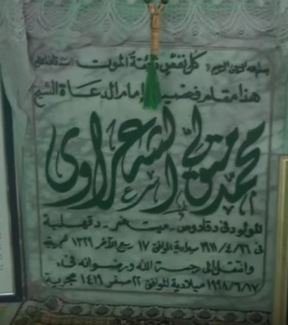 بسم الله الرحمن الرحيم : كل نفس ذائقة الموت
هذا مقام فضيلة إمام الدعاة الشيخ
محمد متولي الشعراوي
المولود في دقادوس - ميت غمر - دقهلية
في ١٩١١/٤/١٦ ميلادية الموافق ١٧ ربيع الآخر ١٣٢٩ هجرية
وانتقل إلى رحمة الله ورضوانه في
١٩٩٨/٦/١٧ ميلادية الموافق ٢٢ صفر ١٤١٩ هجرية